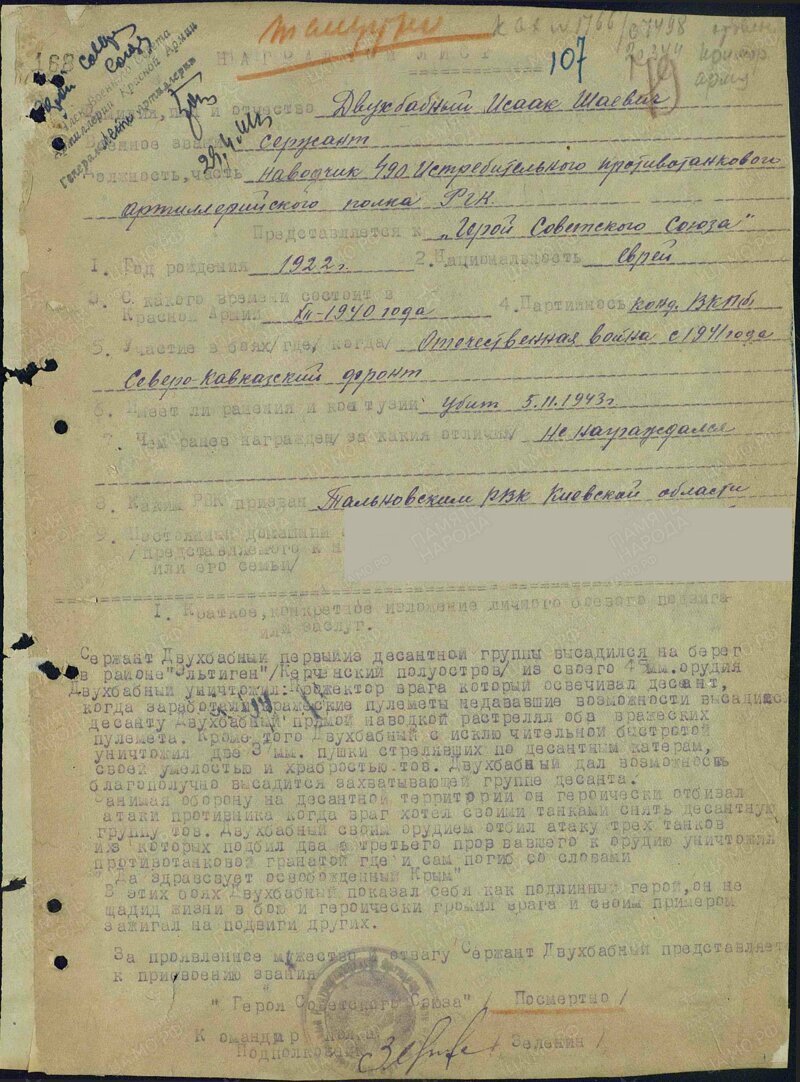 107
НАГРАДНОЙ ЛИСТ
Фамилия, имя и отчество Двухбабный Исаак Шаевич
Военное звание сержант
Должность, часть наводчик 490 Истребительного противотанкового
артиллерийского полка РГК
Представляется к "Герой Советского Союза"
1. Год рождения 1922 г. 2. Национальность еврей
3. С какого времени состоит в
Красной Армии XII-1940 года 4. Партийность конд. ВКПб
5. Участие в боях/где/когда/ Отечественная война с 1941 года
Северо-Кавказский фронт
6. Имеет ли ранения и контузии убит 5.11.1943г
7. Чем ранее награжден/за какия отличия/ не награждался
8. Каким РВК призван Тальновским РВК Киевской области
9. Постоянный домашний
/представляемого к н
или его семьи/
I. Краткое, конкретное изложение личного боевого подвига
или заслуг.
Сержант Двухбабный первый из десантной группы высадился на берег
в районе "Эльтиген"/Керченский полуостров/ из своего 45 мм. орудия
Двухбабный уничтожил прожектор врага который освечивал десант,
когда заработали вражеские пулеметы недававшие возможности высадится
десанту Двухбабный прямой наводкой растрелял оба вражеских
пулемета. Кроме того Двухбабный с исключительной быстротой
уничтожил две 37 мм. пушки стрелявших по десантным катерам,
своей умелостью и храбростью тов. Двухбабный дал возможность
благополучно высадится захватывающей группе десанта.
Занимая оборону на десантной территории он героически отбивал
атаки противника когда враг хотел своими танками снять десантную
группу тов. Двухбабный своим орудием отбил атаку трех танков
из которых подбил два а третьего прорвавшего к орудию уничтожил
противотанковой гранатой где и сам погиб со словами
"Да здравсвует освобожденный Крым"
В этих боях Двухбабный показал себя как подлинный герой, он не
щадид жизни в бою и героически громил врага и своим примером
зажигал на подвиги других.
За проявленное мужество и отвагу Сержант Двухбабный представляет
к присвоению звания
" Героя Советского Союза" / Посмертно /
Командир полка
Подполковник / Зеленин /